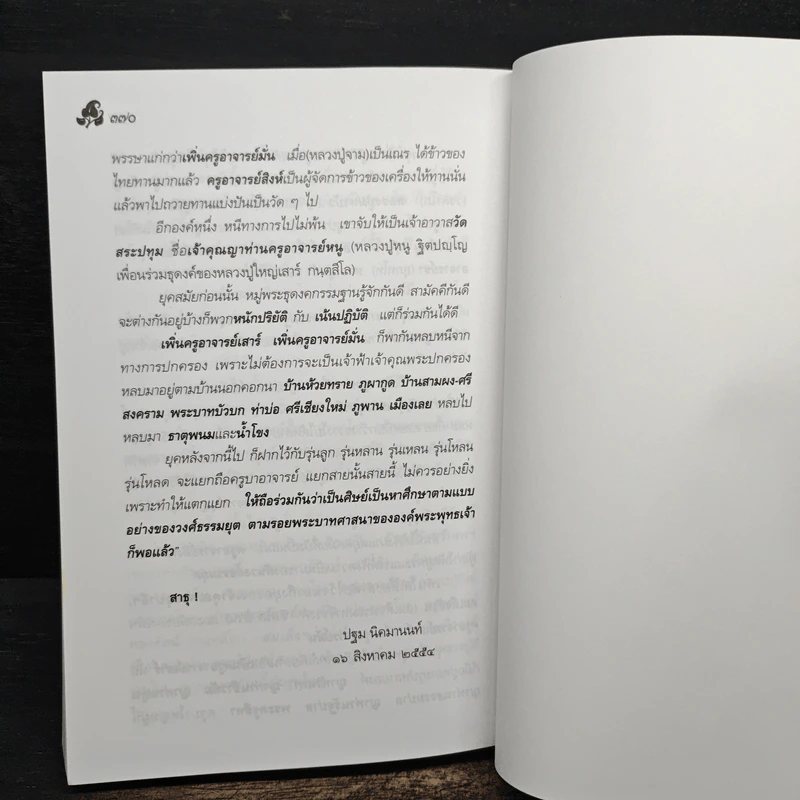 ๓๗๐
พรรษาแก่กว่าเพิ่นครูอาจารย์มั่น เมื่อ(หลวงปู่จาม)เป็นเณร ได้ข้าวของ
ไทยทานมากแล้ว ครูอาจารย์สิงห์เป็นผู้จัดการข้าวของเครื่องให้ทานนั่น
แล้วพาไปถวายทานแบ่งปันเป็นวัด ๆ ไป
อีกองค์หนึ่ง หนีทางการไปไม่พ้น เขาจับให้เป็นเจ้าอาวาสวัด
สระปทุม ชื่อเจ้าคุณญาท่านครูอาจารย์หนู (หลวงปู่หนู ฐิตปญฺโญ
เพื่อนร่วมธุดงค์ของหลวงปู่ใหญ่เสาร์ กนฺตสีโล)
ยุคสมัยก่อนนั้น หมู่พระธุดงคกรรมฐานรู้จักกันดี สามัคคีกันดี
จะต่างกันอยู่บ้างก็พวกหนักปริยัติ กับ เน้นปฏิบัติ แต่ก็ร่วมกันได้ดี
เพิ่นครูอาจารย์เสาร์ เพิ่นครูอาจารย์มั่น ก็พากันหลบหนีจาก
ทางการปกครอง เพราะไม่ต้องการจะเป็นเจ้าฟ้าเจ้าคุณพระปกครอง
หลบมาอยู่ตามบ้านนอกคอกนา บ้านห้วยทราย ภูผากูด บ้านสามผง-ศรี
สงคราม พระบาทบัวบก ท่าบ่อ ศรีเชียงใหม่ ภูพาน เมืองเลย หลบไป
หลบมา ธาตุพนมและน้ำโขง
ยุคหลังจากนี้ไป ก็ฝากไว้กับรุ่นลูก รุ่นหลาน รุ่นเหลน รุ่นโหลน
รุ่นโหลด จะแยกถือครูบาอาจารย์ แยกสายนั้นสายนี้ ไม่ควรอย่างยิ่ง
เพราะทำให้แตกแยก ให้ถือร่วมกันว่าเป็นศิษย์เป็นหาศึกษาตามแบบ
อย่างของวงศ์ธรรมยุต ตามรอยพระบาทศาสนาขององค์พระพุทธเจ้า
ก็พอแล้ว"
สาธุ !
ปฐม นิคมานนท์
๑๖ สิงหาคม ๒๕๕๔